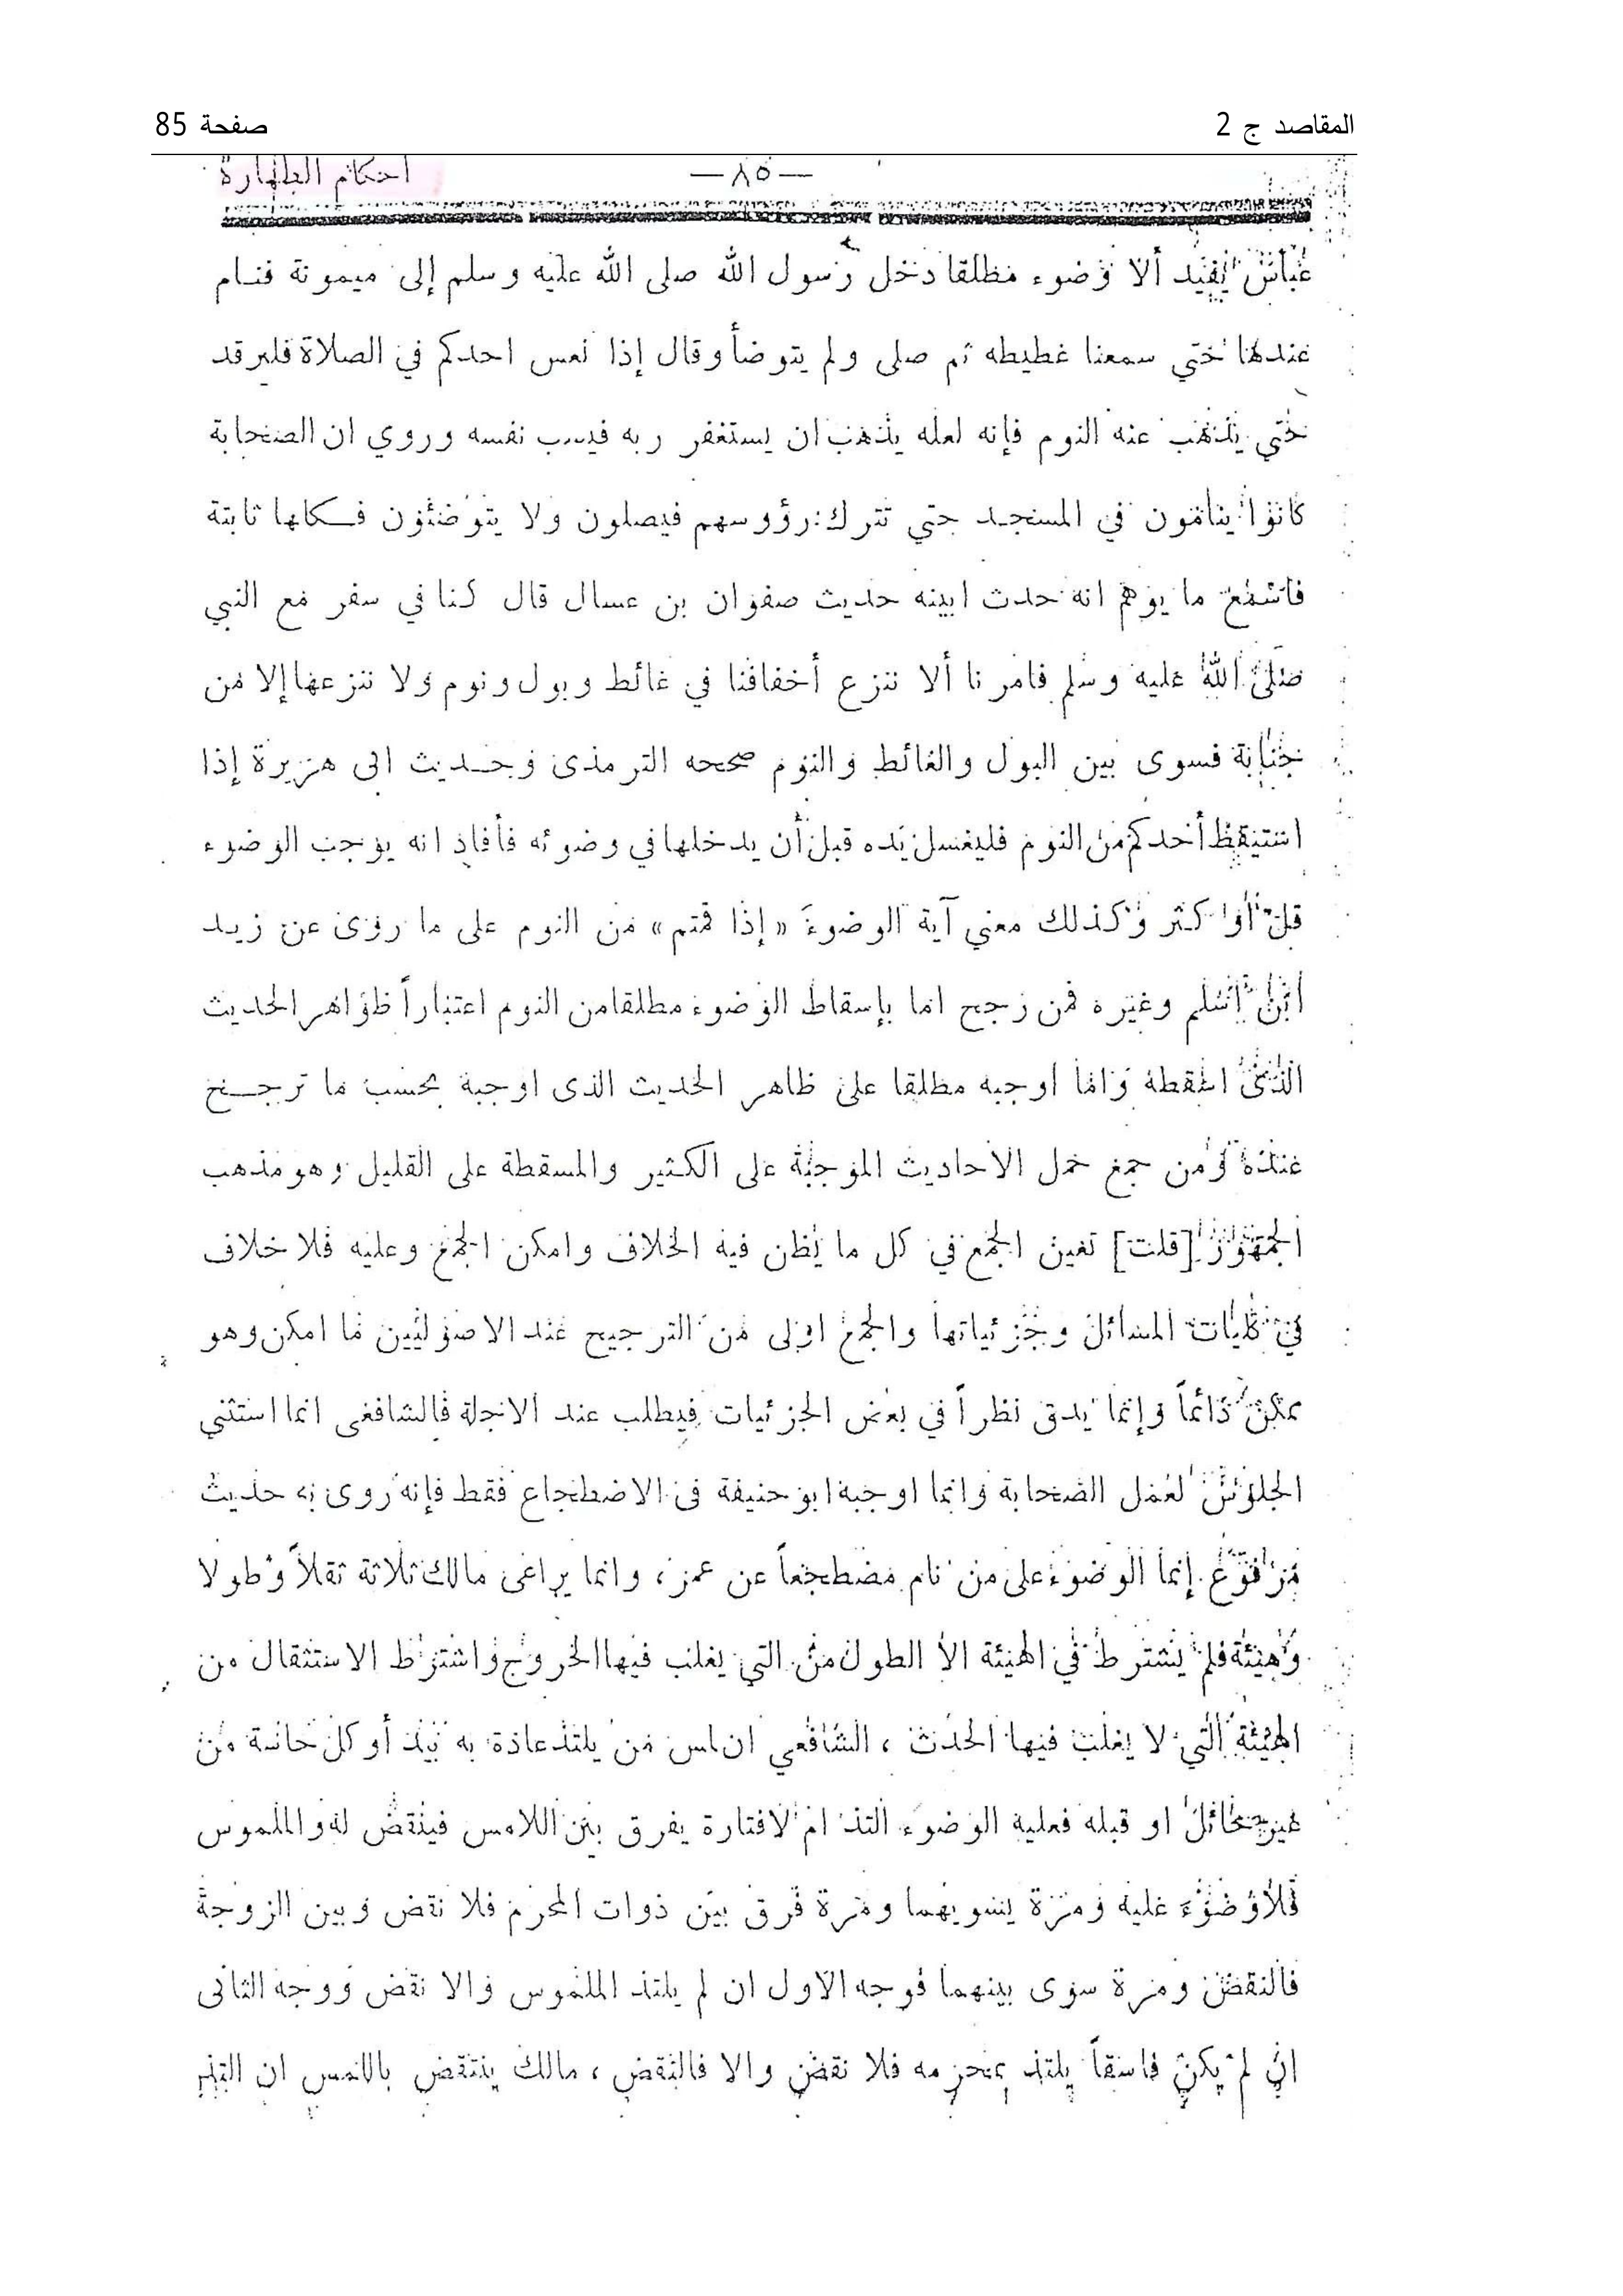 المقاصد ج 2
صفحة 85
— ٨٥ —
احكام الطهارة
عباس يفيد ألا وضوء مطلقا دخل رسول الله صلى الله عليه وسلم إلى ميمونة فنام
عندها حتي سمعنا غطيطه ثم صلى ولم يتوضأ وقال إذا نعس احدكم في الصلاة فليرقد
حتي يذهب عنه النوم فإنه لعله يذهب ان يستغفر ربه فيسب نفسه وروي ان الصحابة
كانوا ينامون في المسجد حتي تترك رؤوسهم فيصلون ولا يتوضئون فكلها ثابتة
فاسمع ما يوهم انه حدث ابينه حديث صفوان بن عسال قال كنا في سفر مع النبي
صلى الله عليه وسلم فامرنا ألا ننزع أخفافنا في غائط وبول ونوم ولا ننزعها إلا من
جنابة فسوى بين البول والغائط والنوم صححه الترمذى وحديث ابى هريرة إذا
استيقظ أحدكم من النوم فليغسل يده قبل أن يدخلها في وضوئه فأفاد انه يوجب الوضوء
قل أو كثر وكذلك معني آية الوضوء « إذا قمتم » من النوم على ما روى عن زيد
ابن اسلم وغيره فمن رجح اما بإسقاط الوضوء مطلقا من النوم اعتباراً ظواهر الحديث
الذى اسقطه واما أوجبه مطلقا على ظاهر الحديث الذى اوجبه بحسب ما ترجح
عنده ومن جمع حمل الاحاديث الموجبة على الكثير والمسقطة على القليل وهو مذهب
الجمهور [قلت] تعين الجمع في كل ما يظن فيه الخلاف وامكن الجمع وعليه فلا خلاف
في كليات المسائل وجزئياتها والجمع اولى من الترجيح عند الاصوليين ما امكن وهو
ممكن دائماً وإنما يدق نظراً في بعض الجزئيات فيطلب عند الاجلة فالشافعى انما استثني
الجلوس لعمل الصحابة وانما اوجبه ابو حنيفة فى الاضطجاع فقط فإنه روى به حديث
مرفوع إنما الوضوء على من نام مضطجعاً عن عمر، وانما يراعى مالك ثلاثة ثقلاً وطولا
وهيئة فلم يشترط في الهيئة الا الطول من التي يغلب فيها الخروج واشترط الاستثقال من
الهيئة التي لا يغلب فيها الحدث ، الشافعي ان لمس من يلتذ عادة به بيد أو كل حاسة من
غير حائل او قبله فعليه الوضوء التذ ام لا فتارة يفرق بين اللامس فينقض له والملموس
فلا وضوء عليه ومرة يسويهما ومرة فرق بين ذوات المحرم فلا نقض وبين الزوجة
فالنقض ومرة سوى بينهما فوجه الاول ان لم يلتذ الملموس والا نقض ووجه الثانى
ان لم يكن فاسقاً يلتذ بمحرمه فلا نقض والا فالنقض ، مالك ينتقض باللمس ان التذ